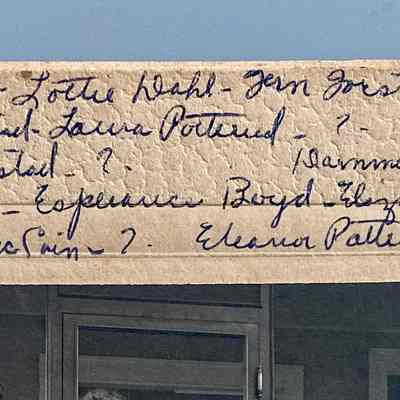 - Lottie Dahl - Fern Forst
Laura Potterud - ? -
stad - ? . Damme
- Esperance Boyd - Eliz
cCain - ? . Eleanor Patte